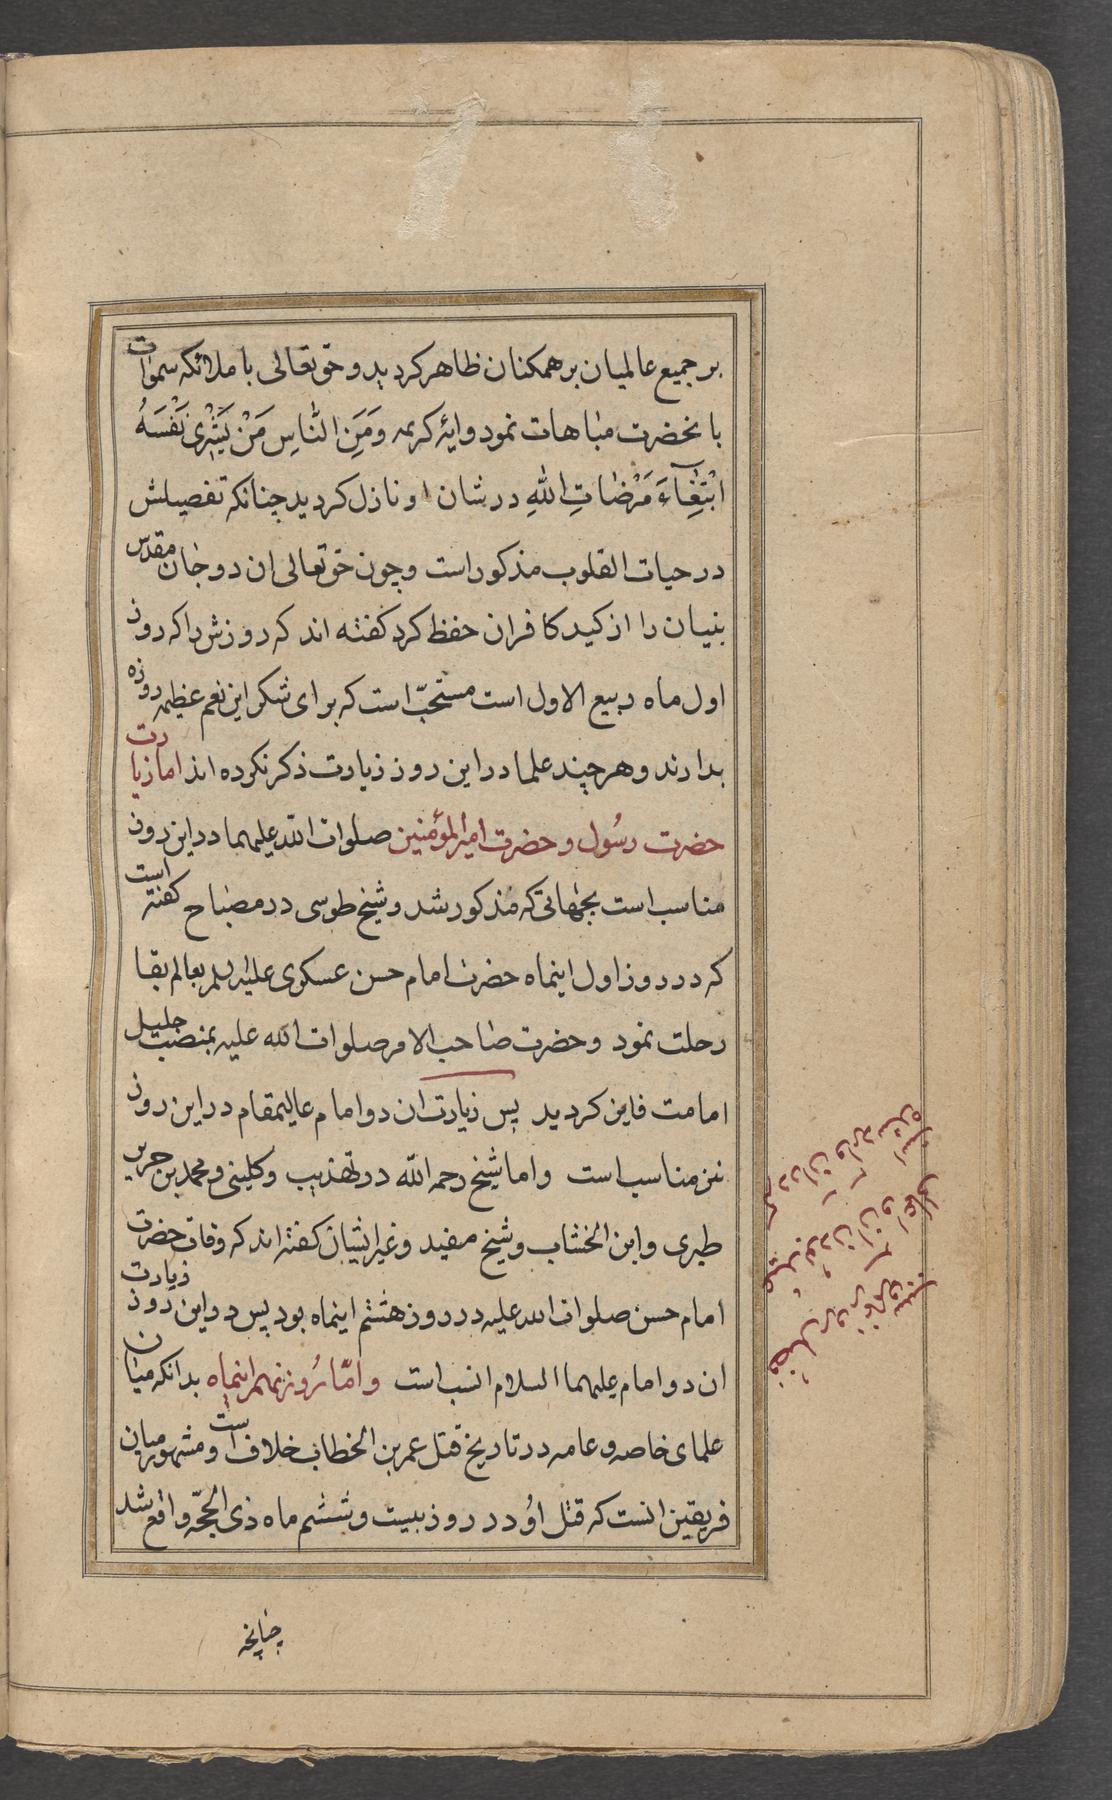 بر جمیع عالمیان بر همکنان ظاهر کردید و حق تعالی با ملائکه سموات
بانحضرت مباهات نمود و ایهٔ کریمه وَمِنَ النَّاسِ مَنْ یَشْرِی نَفْسَهُ
ابْتِغَآءَ مَرْضَاتِ اللهِ در شان او نازل کردید چنانکه تفصیلش
در حیات القلوب مذکور است و چون حق تعالی ان دو جان مقدس
بنیان را از کید کافران حفظ کرد کفته اند که روزش را که روز
اول ماه ربیع الاول است مستحبّ است که برای شکر این نعم عظیمه روزه
بدارند و هر چند علما در این روز زیارت ذکر نکرده اند اما زیارت
حضرت رسُول و حضرت امیر المؤمنین صلوات الله علیهما در این روز
مناسب است بجهاتی که مذکور شد و شیخ طوسی در مصباح کفته است
که در روز اول اینماه حضرت امام حسن عسکری علیه السلم بعالم بقا
رحلت نمود و حضرت صاحب الامر صلوات الله علیه بمنصب جلیل
امامت فایز کردید پس زیارت ان دو امام عالیمقام در این روز
نیز مناسب است و اما شیخ رحمه الله در تهذیب و کلینی و محمد بن جریر
طبری و ابن الخشاب و شیخ مفید و غیر ایشان کفته اند که وفات حضرت
امام حسن صلوات الله علیه در روز هشتم اینماه بود پس در این روز زیارت
ان دو امام علیهما السلام انسب است و امّا رُوز نهم اینماه بدانکه میان
علمای خاصه و عامه در تاریخ قتل عمر بن الخطاب خلاف است و مشهور میان
فریقین انست که قتل اوُ در روز بیست و ششم ماه ذی الحجّه واقع شد
چنانچه